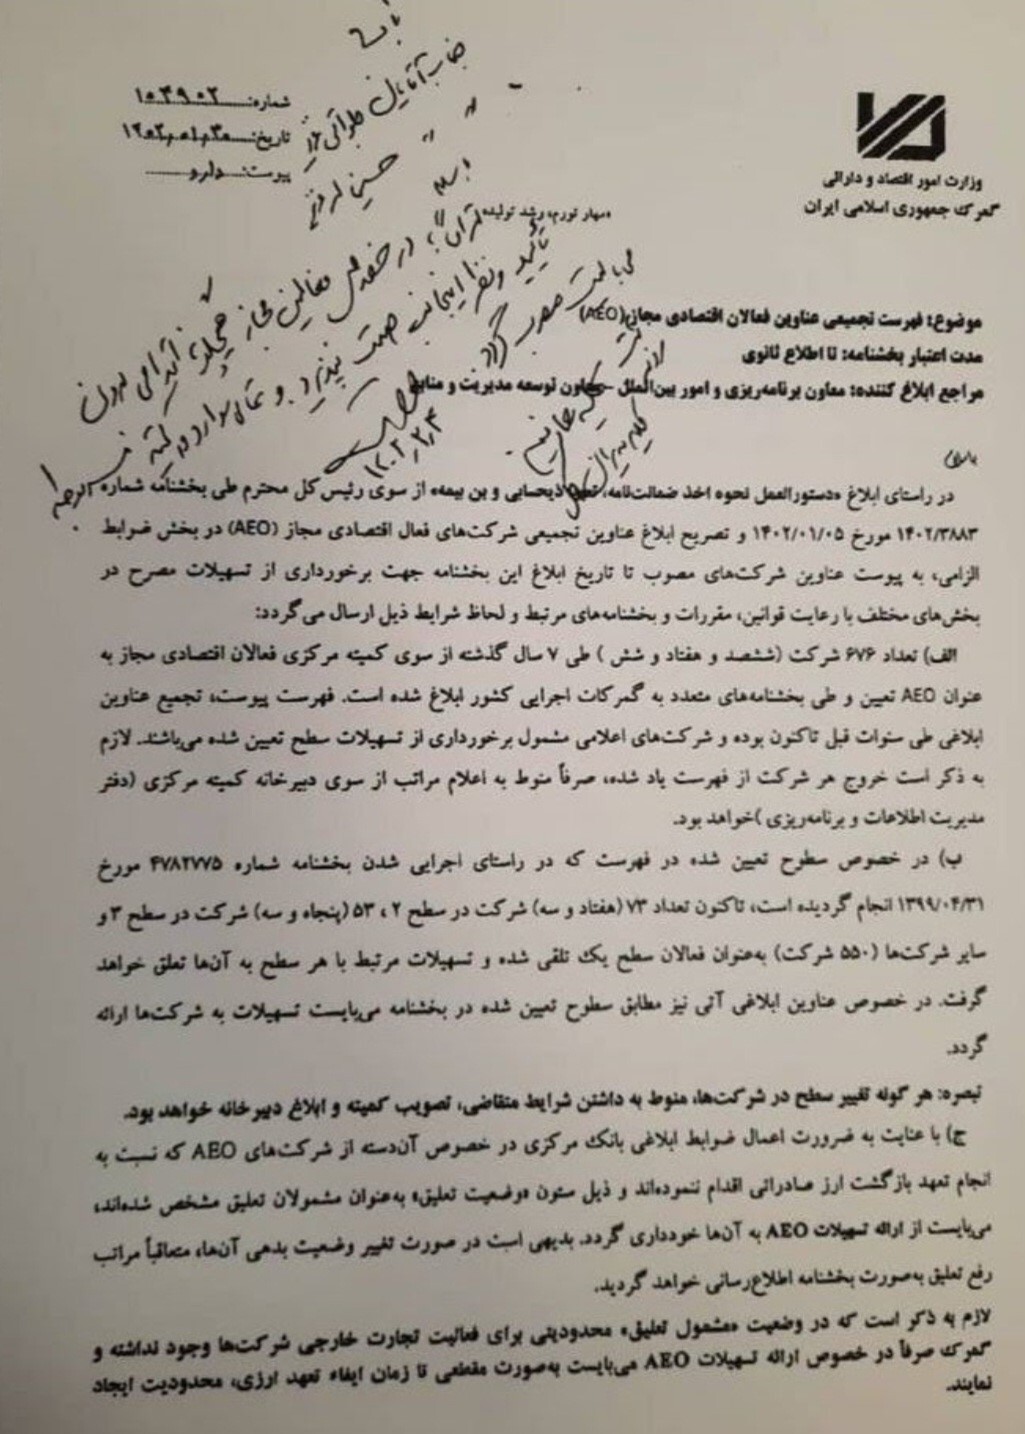 شماره: ۱۰۳۹۰۲
تاریخ: ۱۴۰۲.۰۱.۳۰
پیوست: دارد
وزارت امور اقتصاد و دارائی
گمرک جمهوری اسلامی ایران
«مهار تورم، رشد تولید»
موضوع: فهرست تجمیعی عناوین فعالان اقتصادی مجاز (AEO)
مدت اعتبار بخشنامه: تا اطلاع ثانوی
مراجع ابلاغ کننده: معاون برنامه‌ریزی و امور بین‌الملل - معاون توسعه مدیریت و منابع
باسلام
در راستای ابلاغ «دستورالعمل نحوه اخذ ضمانت‌نامه، تعهد ذیحسابی و بن بیمه» از سوی رئیس کل محترم طی بخشنامه شماره
۱۴۰۲/۳۸۸۳ مورخ ۱۴۰۲/۰۱/۰۵ و تصریح ابلاغ عناوین تجمیعی شرکت‌های فعال اقتصادی مجاز (AEO) در بخش ضرابط
الزامی، به پیوست عناوین شرکت‌های مصوب تا تاریخ ابلاغ این بخشنامه جهت برخورداری از تسهیلات مصرح در
بخش‌های مختلف با رعایت قوانین، مقررات و بخشنامه‌های مرتبط و لحاظ شرایط ذیل ارسال می‌گردد:
الف) تعداد ۶۷۶ شرکت (ششصد و هفتاد و شش ) طی ۷ سال گذشته از سوی کمیته مرکزی فعالان اقتصادی مجاز به
عنوان AEO تعیین و طی بخشنامه‌های متعدد به گمرکات اجرایی کشور ابلاغ شده است. فهرست پیوست، تجمیع عناوین
ابلاغی طی سنوات قبل تاکنون بوده و شرکت‌های اعلامی مشمول برخورداری از تسهیلات سطح تعیین شده می‌باشند. لازم
به ذکر است خروج هر شرکت از فهرست یاد شده، صرفاً منوط به اعلام مراتب از سوی دبیرخانه کمیته مرکزی (دفتر
مدیریت اطلاعات و برنامه‌ریزی )خواهد بود.
ب) در خصوص سطوح تعیین شده در فهرست که در راستای اجرایی شدن بخشنامه شماره ۴۷۸۲۷۷۵ مورخ
۱۳۹۹/۰۴/۳۱ انجام گردیده است، تاکنون تعداد ۷۳ (هفتاد و سه) شرکت در سطح ۲ ، ۵۳ (پنجاه و سه) شرکت در سطح ۳ و
سایر شرکت‌ها (۵۵۰ شرکت) به‌عنوان فعالان سطح یک تلقی شده و تسهیلات مرتبط با هر سطح به آن‌ها تعلق خواهد
گرفت. در خصوص عناوین ابلاغی آتی نیز مطابق سطوح تعیین شده در بخشنامه می‌بایست تسهیلات به شرکت‌ها ارائه
گردد.
تبصره: هر گونه تغییر سطح در شرکت‌ها، منوط به داشتن شرایط متقاضی، تصویب کمیته و ابلاغ دبیرخانه خواهد بود.
ج) با عنایت به ضرورت اعمال ضوابط ابلاغی بانک مرکزی در خصوص آن‌دسته از شرکت‌های AEO که نسبت به
انجام تعهد بازگشت ارز صادراتی اقدام ننموده‌اند و ذیل ستون «وضعیت تعلیق» به‌عنوان مشمولان تعلیق مشخص شده‌اند،
می‌بایست از ارائه تسهیلات AEO به آن‌ها خودداری گردد. بدیهی است در صورت تغییر وضعیت بدهی آن‌ها، متعاقباً مراتب
رفع تعلیق به‌صورت بخشنامه اطلاع‌رسانی خواهد گردید.
لازم به ذکر است که در وضعیت «مشمول تعلیق» محدودیتی برای فعالیت تجارت خارجی شرکت‌ها وجود نداشته و
گمرک صرفاً در خصوص ارائه تسهیلات AEO می‌بایست به‌صورت مقطعی تا زمان ایفاء تعهد ارزی، محدودیت ایجاد
نمایند.